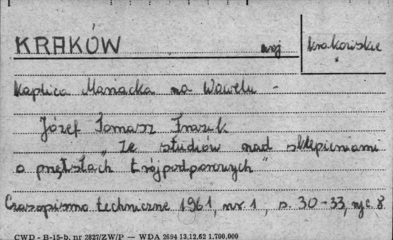 KRAKÓW woj krakowskie
Kaplica Mariacka na Wawelu -
Józef Tomasz Frazik
"Ze studiów nad sklepieniami
o przęsłach trójpodporowych"
Czasopismo techniczne 1961, nr 1, s. 30-33, ryc. 8.
CWD - B-15-b, nr 2827/ZW/P — WDA 2694 13.12.62 1.700.000